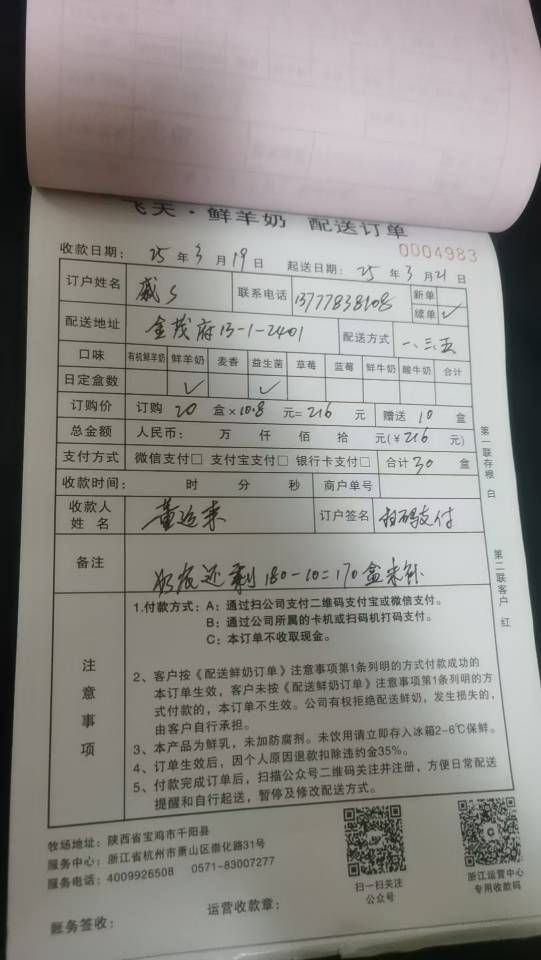 飞天·鲜羊奶 配送订单
0004983
收款日期： 25 年 3 月 19 日 起送日期： 25 年 3 月 21 日
订户姓名 联系电话 13777838108 新单
续单 ✓
配送地址 金茂府13-1-2401 配送方式 一、三、五
口味 有机鲜羊奶 鲜羊奶 麦香 益生菌 草莓 蓝莓 鲜牛奶 酸牛奶 合计
日定盒数 ✓ ✓
订购价 订购 20 盒×10.8 元=216 元 赠送 10 盒
总金额 人民币： 万 仟 佰 拾 元(￥216 元)
支付方式 微信支付□ 支付宝支付□ 银行卡支付□ 合计 30 盒
收款时间： 时 分 秒 商户单号
收款人
姓名 董运来 订户签名 扫码支付
备注 还剩180-10=170盒未补
注意事项
1.付款方式：A：通过扫公司支付二维码支付宝或微信支付。
B：通过公司所属的卡机或扫码机打码支付。
C：本订单不收取现金。
2、客户按《配送鲜奶订单》注意事项第1条列明的方式付款成功的
本订单生效，客户未按《配送鲜奶订单》注意事项第1条列明的方
式付款的，本订单不生效。公司有权拒绝配送鲜奶，发生损失的，
由客户自行承担。
3、本产品为鲜乳，未加防腐剂。未饮用请立即存入冰箱2-6℃保鲜。
4、订单生效后，因个人原因退款扣除违约金35%。
5、付款完成订单后，扫描公众号二维码关注并注册，方便日常配送
提醒和自行起送，暂停及修改配送方式。
第一联存根 白
第二联客户 红
牧场地址：陕西省宝鸡市千阳县
服务中心：浙江省杭州市萧山区崇化路31号
服务电话：4009926508 0571-83007277
扫一扫关注
公众号
浙江运营中心
专用收款码
账务签收： 运营收款章：